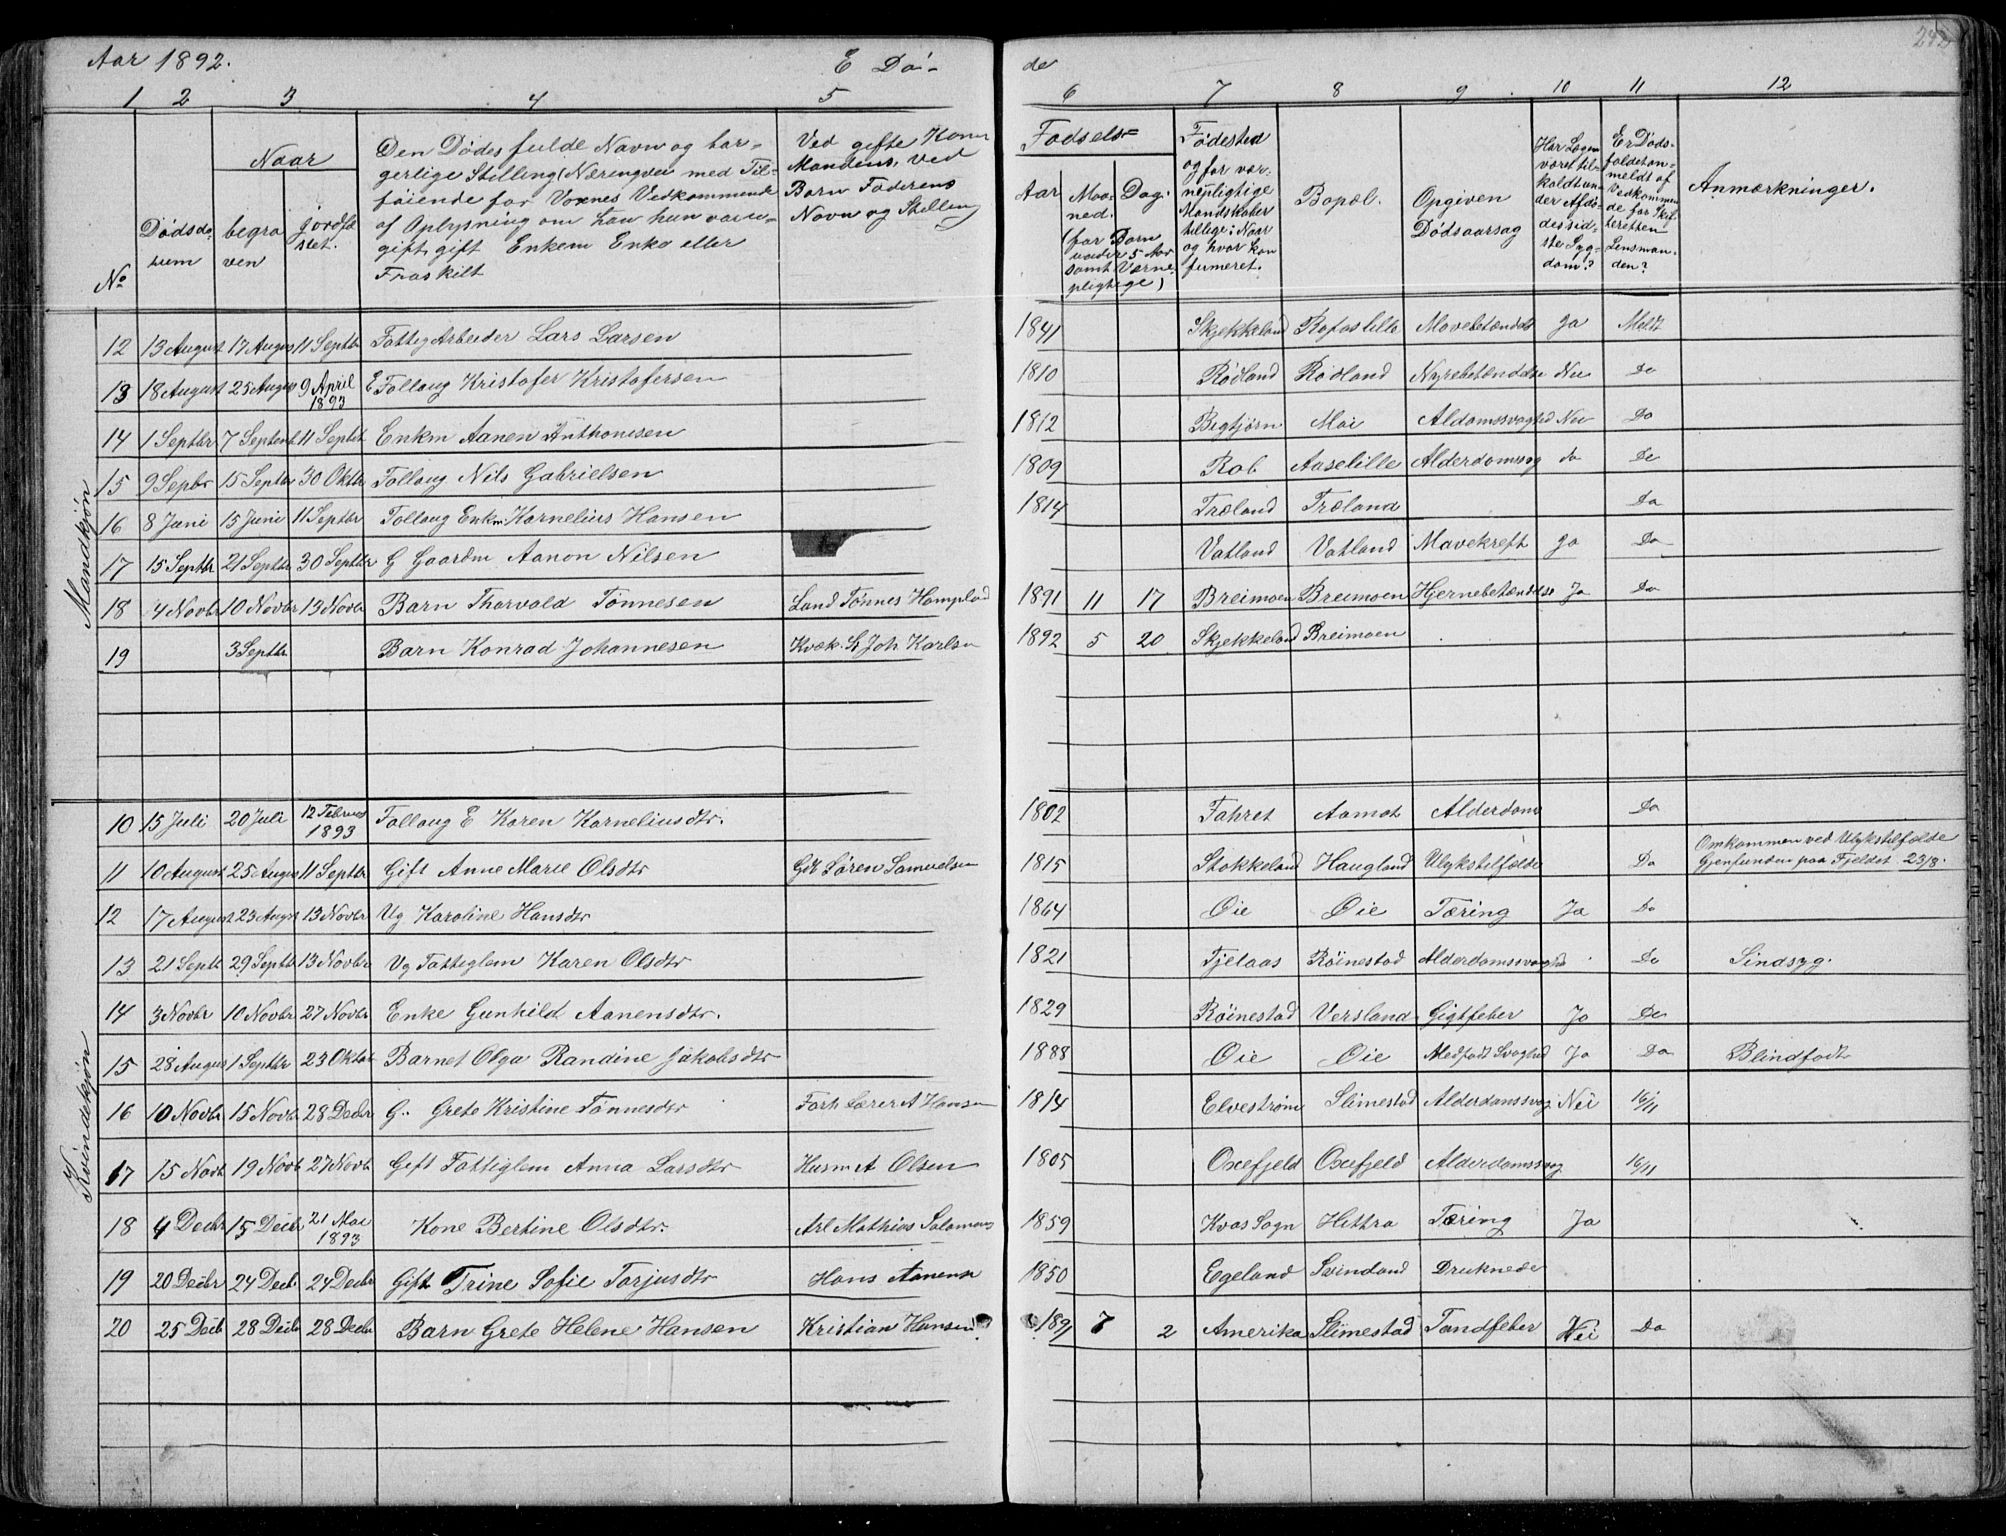 Aar 1892. E Dö-
de
242
1 2 3 4 5
6 7 8 9 10 11 12
No
Dödsda-
tum
Naar
begra
ven
jordfæ
stet.
Den Dödes fulde Navn og bor-
gerlige Stilling (Næringvei med Til-
föiende for Voxnes Vedkommende
af Oplysning om han hun var u-
gift, gift Enkem Enke eller
Fraskilt
Ved gifte Koner
Mandens, ved
Barn Faderens
Navn og Stilling
Födsels-
Aar
Maa-
ned.
Dag.
(for Börn
under 5 Aar
samt Værne-
pligtige)
Födested
og for vær-
nepligtige
Mandskaber
tillige: Naar
og hvor kon
firmeret.
Bopæl.
Opgiven
Dödsaarsag
Har Lægen
været til-
kaldt un-
der Afdö-
des sid-
ste Syg-
dom?
Er Döds-
faldet an-
meldt af
Vedkommen
de for Skif
teretten
Lensman-
den?
Anmærkninger.
Mandkjön
12 13 August 17 August 11 Septbr Fattig Arbeider Lars Larsen 1841 Skjekkeland Rafoslille Mavebetændels Ja Meldt
13 18 August 25 August 9 April 1893 E Follaug Kristofer Kristofersen 1810 Rödland Rödland Nyrebetændelse Nei Do
14 1 Septbr 7 Septembr 11 Septbr Enkm Aanen Anthonisen 1812 Bigtjörn Moi Aldomssvaghed Nei Do
15 9 Sepbr 15 Septbr 30 Oktbr Follaug Nils Gabrielsen 1809 Rob Aaselille Alderdomssvag do Do
16 8 Juni 15 Juni 11 Septbr Follaug Enkm. Kornelius Hansen 1814 Træland Træland Do
17 15 Septbr 21 Septbr 30 Septbr G Gaardm Aanon Nilsen Vatland Vatland Mavekreft Ja Do
18 4 Novbr 10 Novbr 13 Novbr Barn Thorvald Tönnesen Land Tönnes 1891 11 17 Breimoen Breimoen Hjernebetændelse Ja Do
19 3 Septbr Barn Konrad Johannesen Kvæk. Joh Karlsen 1892 5 20 Skjekkeland Breimoen
Kvindekjön
10 15 Juli 20 Juli 12 Februar 1893 Follaug E Karen Korneliusdtr. 1802 Fahret Aamot Alderdom Do
11 10 August 25 August 11 Septbr Gift Anne Marie Olsdtr Gdr Sören Samuelsen 1815 Stokkeland Haugland Ulykstilfælde Do Omkommen ved Ulykstilfælde
Gjenfunden paa Fjeldet 23/8.
12 17 August 23 Augst 13 Novbr Ug Karoline Hansdtr 1864 Öie Öie Tæring Ja Do
13 21 Septb 29 Septbr 13 Novbr Ug Fattiglem Karen Olsdtr 1821 Fjelaas Röinestad Alderdomssvaghed Do Sindsyg.
14 3 Novbr 10 Novbr 27 Novbr Enke Gunhild Aanensdtr. 1829 Röinestad Versland Gigtfeber Ja Do
15 28 August 1 Septbr 23 Oktobr Barnet Olga Randine Jakobsdtr 1888 Öie Öie Medfödt Svaghed Ja Do Blindfödt
16 10 Novbr 15 Novbr 28 Decbr G.. Grete Kristine Tönnesdtr Forh Lærer A Hansen 1814 Elveström Slimestad Alderdomssvag Nei 16/11
17 15 Novb 19 Novb 27 Novb Gift Fattiglem Anna Larsdtr Husm A Olsen 1805 Oxefjeld Oxefjeld Alderdomssvag 16/11
18 4 Decbr 15 Decbr 21 Mai 1893 Kone Bertine Olsdtr. Arb Mathias Salamons 1859 Kvas Sogn Hittra Tæring Ja
19 20 Decbr 24 Decb. 24 Decbr Gift Trine Sofie Torjusdtr Hans Aanensn 1850 Egeland Svindland Druknede
20 25 Decb 28 Decbr 28 Decbr Barn Grete Helene Hansen Kristian Hansen 1891 7 2 Amerika Slimestad Tandfeber Nei Do